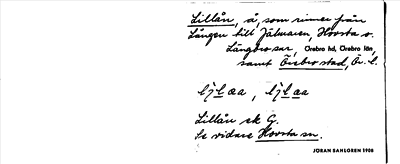 Lillån, å, som rinner från
Lången till Jälmaren, Hovsta o.
Längbro snr, Örebro hd, Örebro län,
samt Örebro stad, Ör. l.
Lillån ek G.
Se vidare Hovsta sn.
JÖRAN SAHLGREN 1906